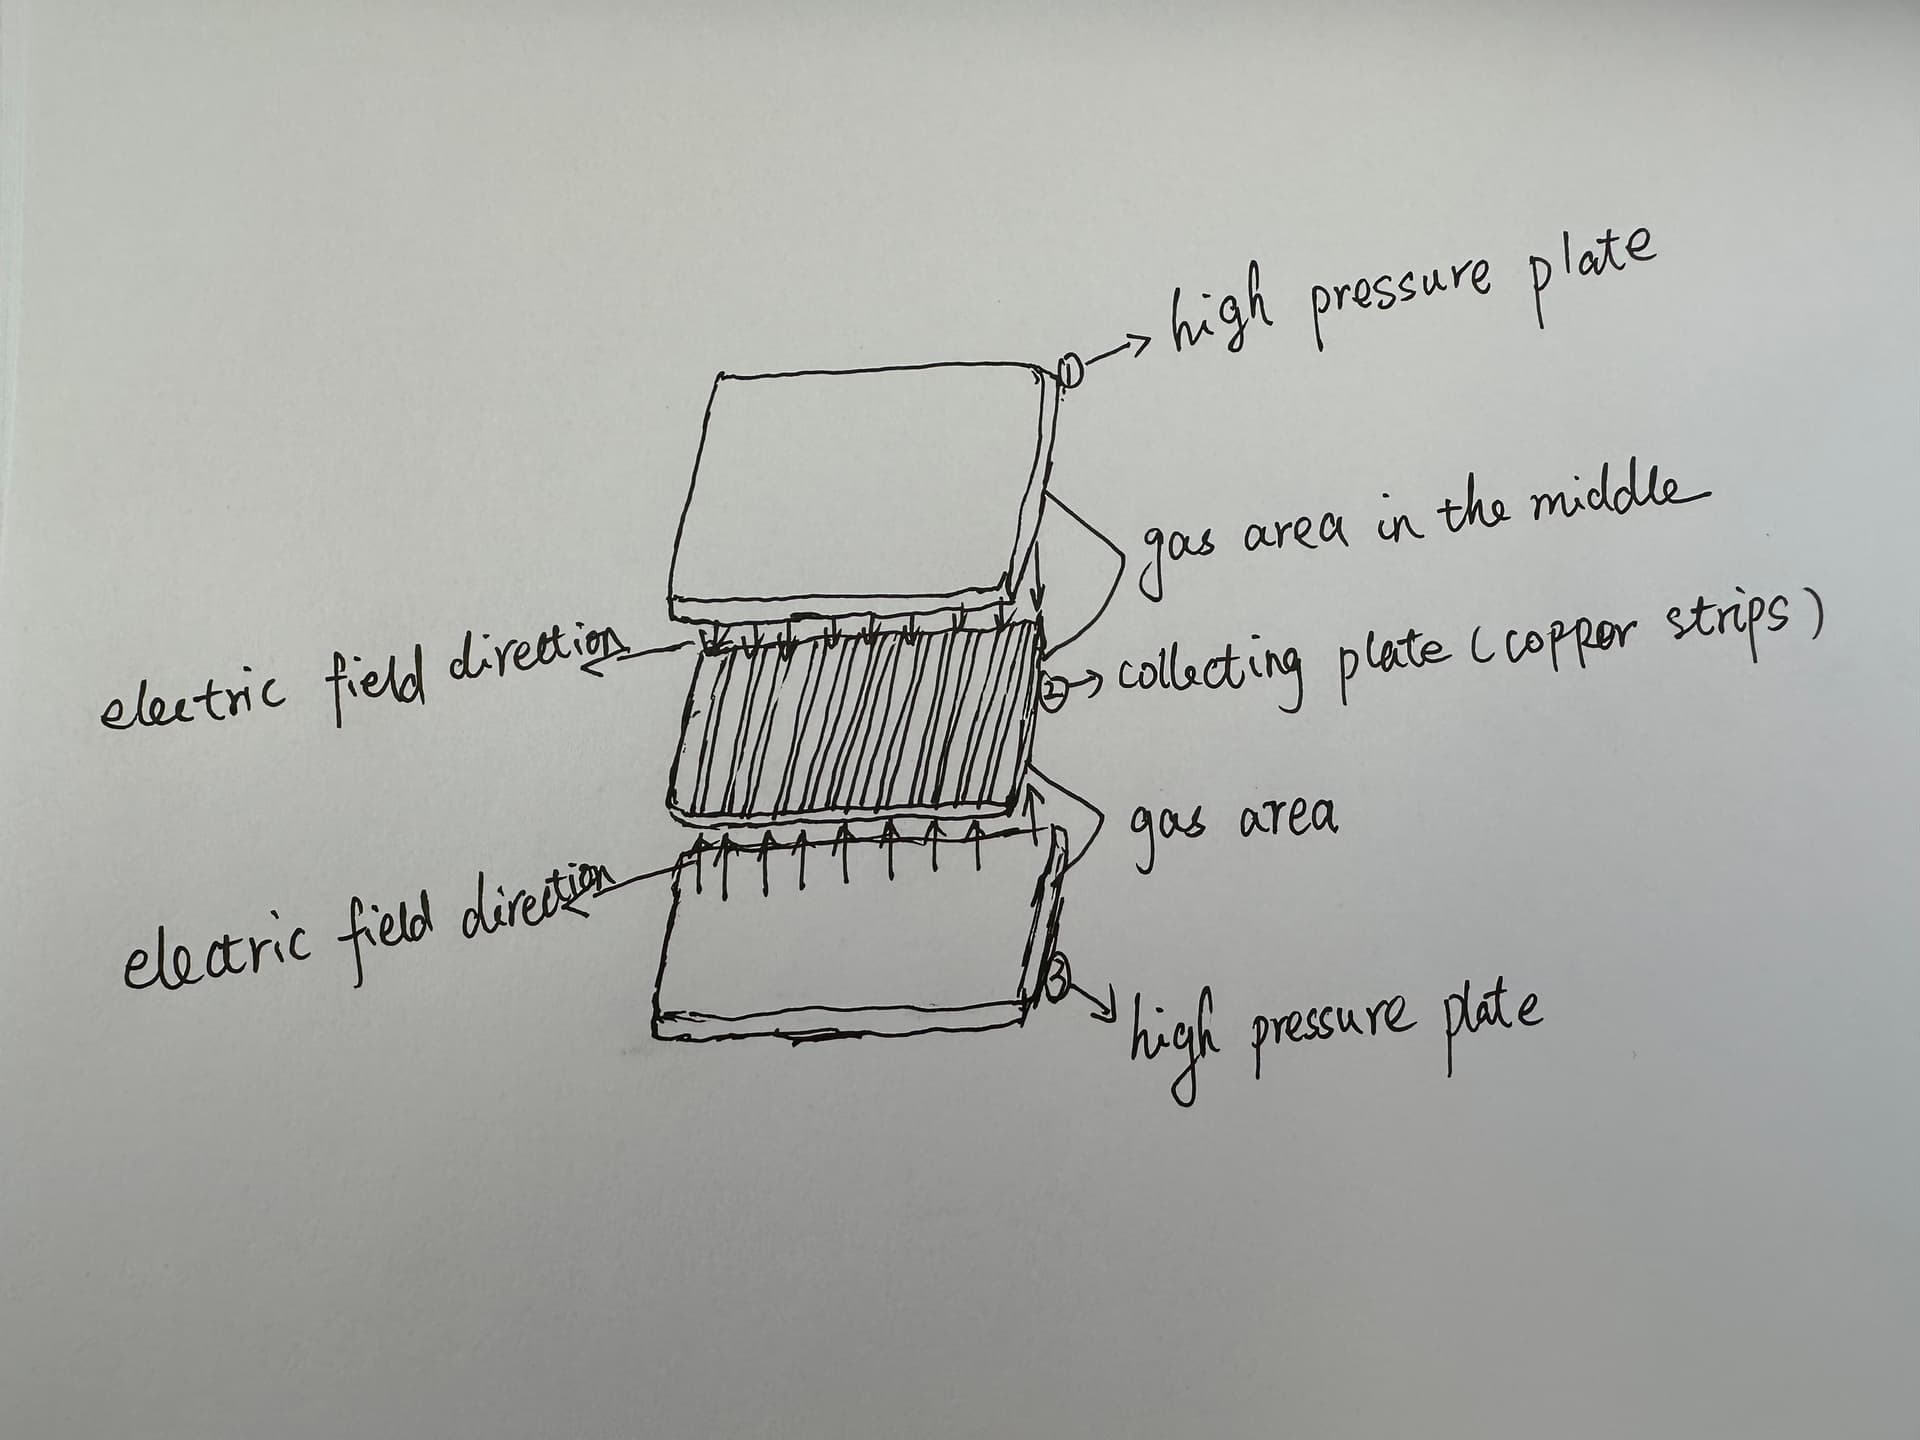 ① high pressure plate
gas area in the middle
electric field direction
② collecting plate (copper strips)
gas area
electric field direction
③ high pressure plate